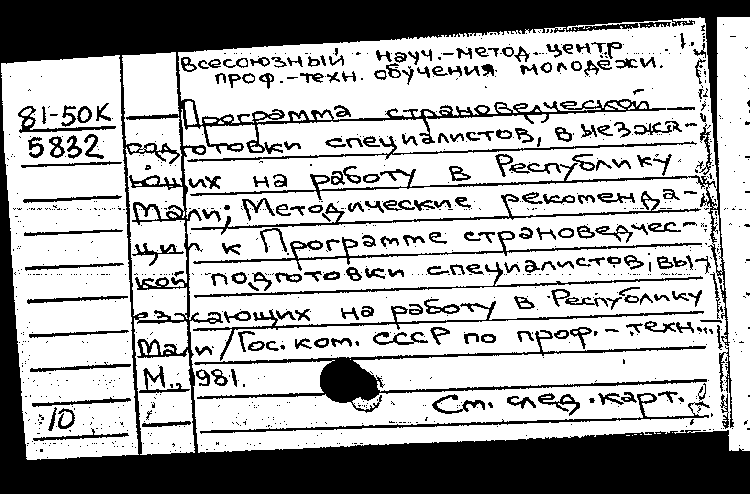 Всесоюзный науч.-метод. центр 1.
проф.-техн. обучения молодежи.
81-50К Программа страноведческой
5832 подготовки специалистов, выезжа-
ющих на работу в Республику
Мали; Методические рекоменда-
ции к Программе страноведчес-
кой подготовки специалистов, вы-
езжающих на работу в Республику
Мали/Гос. ком. СССР по проф.-техн...
М., 1981.
10 См. след. карт.